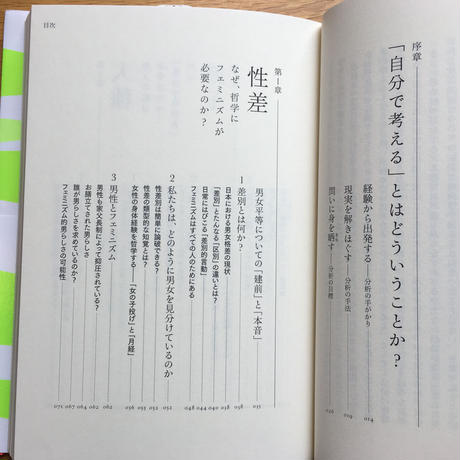 序章
「自分で考える」とはどういうことか?
経験から出発する——分析の手がかり 014
現実を解きほぐす——分析の手法 019
問いに身を晒す——分析の目標 026
目次
第1章
性差
なぜ、哲学に
フェミニズムが
必要なのか?
男女平等についての「建前」と「本音」 035
1 差別とは何か? 038
日本における男女格差の現状 038
「差別」とたんなる「区別」の違いとは? 040
日常にはびこる「差別的言動」 044
フェミニズムはすべての人のためにある 048
2 私たちは、どのように男女を見分けているのか 052
性差別は簡単に論破できる?
性差の類型的な知覚とは?
女性の身体経験を哲学する——「女の子投げ」と「月経」 056
3 男性とフェミニズム 062
男性も家父長制によって抑圧されている? 062
お膳立てされた男らしさ 064
誰が男らしさを求めているのか? 067
フェミニズム的男らしさの可能性 071